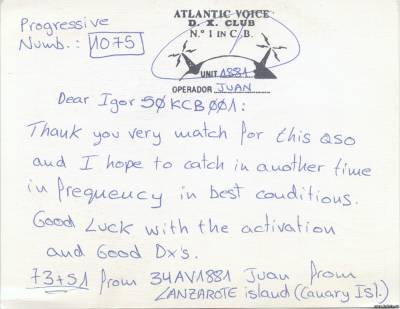 Progressive
Numb.: 1075
ATLANTIC VOICE
D. X. CLUB
N.º 1 IN C. B.
UNIT 1881
OPERADOR JUAN
Dear Igor 50KCB001:
Thank you very match for this QSO
and I hope to catch in another time
in frequency in best conditions.
Good Luck with the activation
and Good Dx's.
73+51 from 34AV1881 Juan from
LANZAROTE island (Canary Isl.)